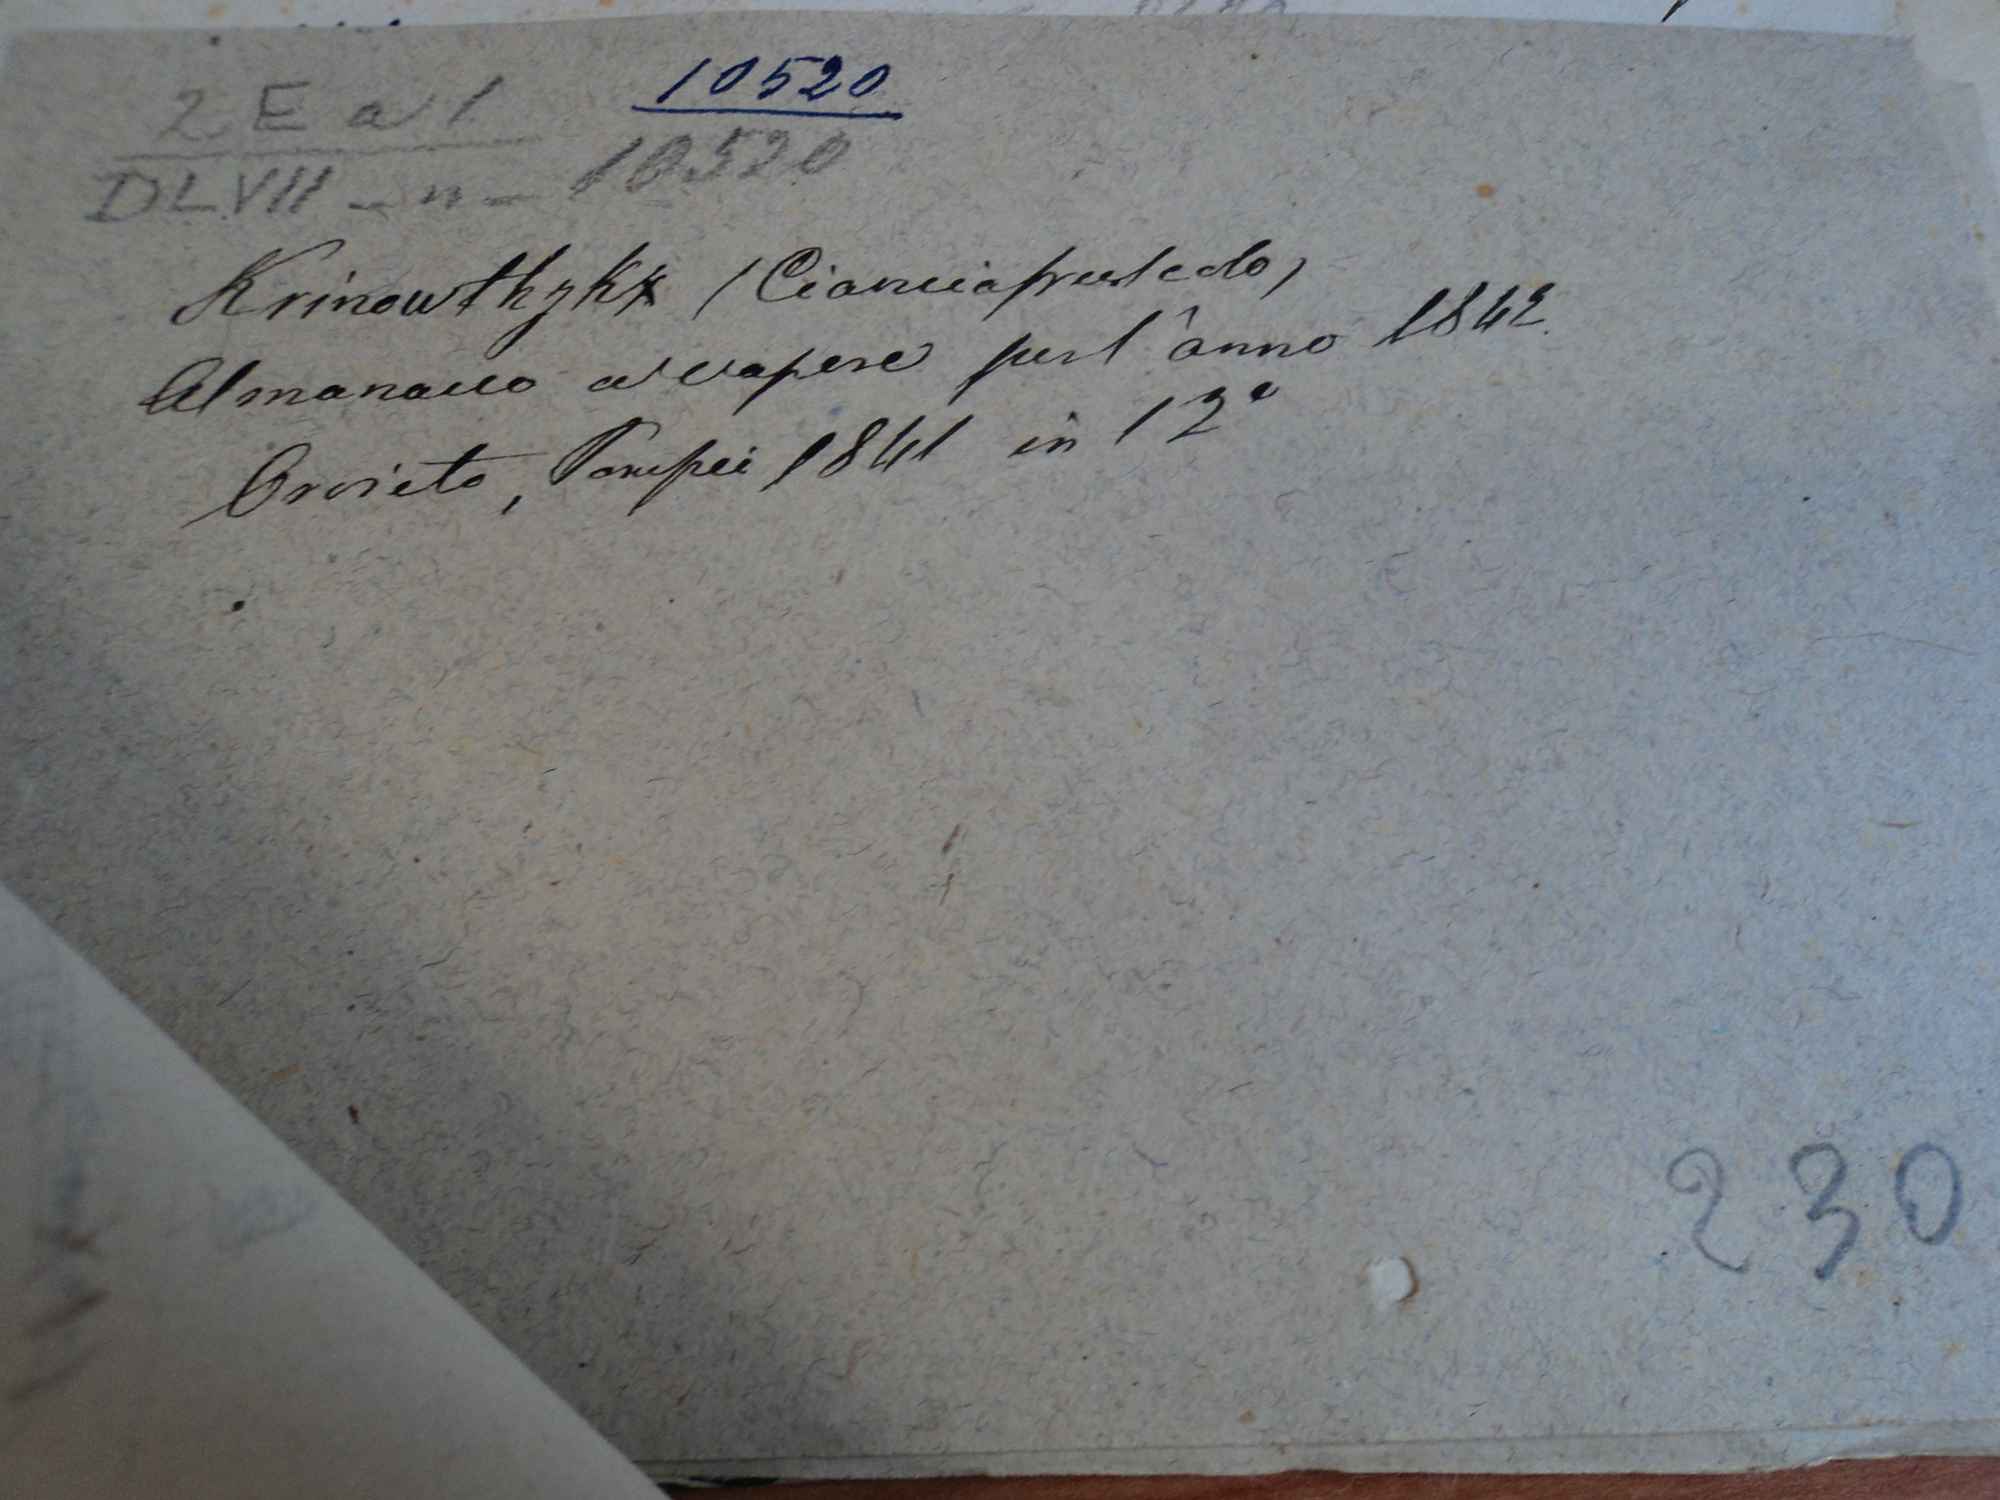 10520
2 E a 1
DLVII - n - 10520
Krinowthzkx (Cianciafruscledo)
Almanacco a vapore per l'anno 1842.
Orvieto, Pompei 1841 in 12°
230